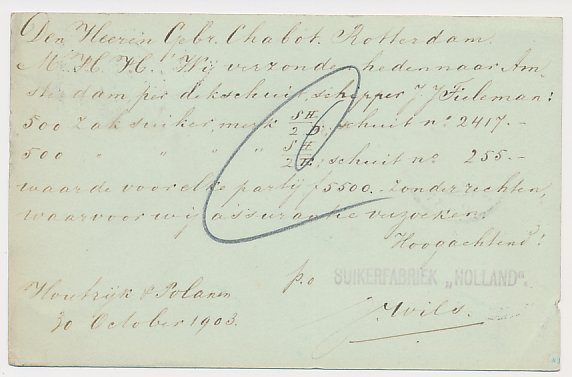 Den Heeren Gebr. Chabot. Rotterdam.
M. H. H. Wij verzonden heden naar Am-
sterdam per dekschuit, schipper J J Fieleman:
500 Zak suiker, merk SH/2 schuit no 2417.-
500 " " " SH/2 schuit no 255.-
waarde voor elke partij f 5500.- zonder rechten,
waarvoor wij assurantie verzoeken.
Hoogachtend!
p.o SUIKERFABRIEK „HOLLAND”.
Houtrijk & Polanen
30 October 1903.